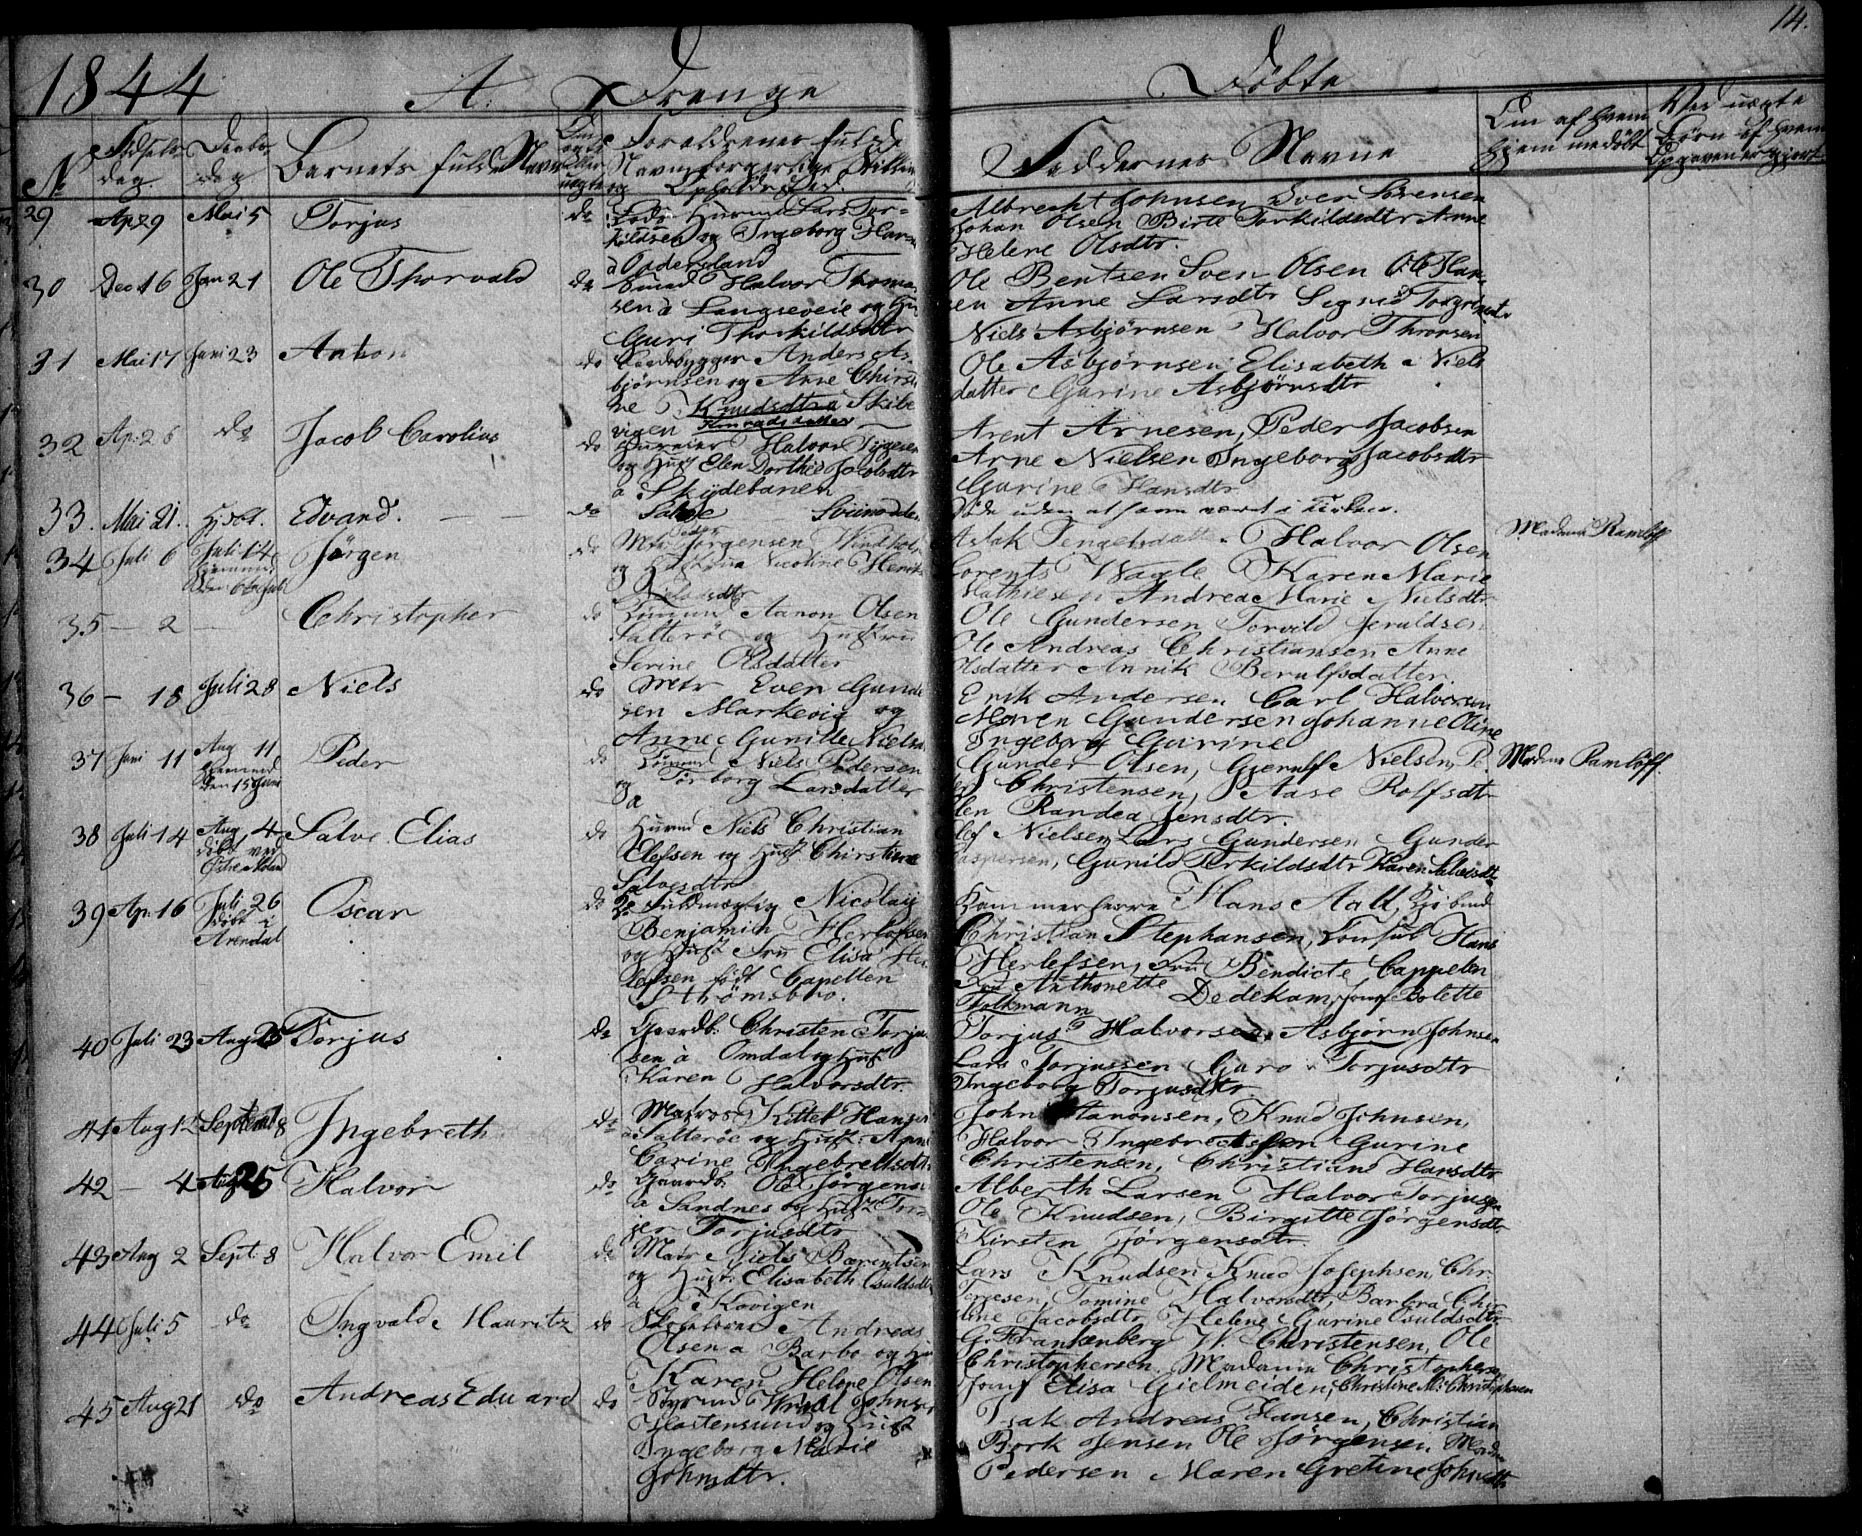 14.
1844 A. Drenge Födte
No Födsels- dag Daabs- dag Barnets fulde Navn Om ægte eller uægte Forældrenes fulde Navn borgerlige Stilling og Opholdssted. Faddernes Navne Om af hvem hjemmedöbt Ved uægte Börn af hvem Opgaven er gjort.
29 Ap 29 Mai 5 Torjus do Lods Lars Tor-
kildsen og Ingeborg
Albrecht Johnsen Sver Sörensen
Johan Olsen Birte Torkildsdtr Anne
Helene Olsdtr.
30 Dec 16 Jan 21 Ole Thorvald do Smed Halvor Thoma-
sen à Langsæveie og Hu
Guri Thorkildsdtr
Ole Bentsen Sven Olsen Ole Han-
sen Anne Larsdtr Signe
31 Mai 17 Juni 23 Anton do Baadbygger Anders As-
bjørnsen og Anne Chirsti
ne Knudsdtr à Skibe
vigen Knudsdatter
Niels Asbjörnsen Halvor Thronsen
Ole Asbjörnsen Elisabeth Niels
datter Gurine Asbjörnsdtr
32 Ap. 26 do Jacob Carolius do Huuseier Halvor Tygesen
og Hust Elen Dorthea Jacobsdtr
a Skydebanen
Arent Arnesen, Peder Jacobsen
Arne Nielsen Ingeborg Jacobsdtr
Gurine Hansdtr
33. Mai 21. Hjdöbt. Edvard. do
Döde uden at have været i Kirken.
34 Juli 6 Juli 14 Jörgen do Mtr Peder Jörgensen Vindholm
og Hustrue Nicoline Henri
Nielsdtr
Aslak Tengelsdatter Halvor Olsen
Lorents Wagle Karen Marie
Mathiesen Andrea Marie Nielsdtr
Madame Ramlöff
35 - 2 - Christopher do Tömmd Aanon Olsen
Salteröe og Hustrue
Serine Olsdatter
Ole Gundersen Torvild Jeruldsen
Ole Andreas Christiansen Anne
Olsdatter Annik Berulfsdatter.
36 - 18 Juli 28 Niels do Matr Even Gunde
sen Markeveie og
Anne Gunille Nielsd
Erik Andersen Carl Halvorsen
Maren Gundersen Johanne Oline
Ingeborg Gurine
37 Juni 11 Aug 11 hjemmed den 15 Juni Peder do Tömmd Niels Pedersen
og Torborg Larsdatter
a
Gunder Olsen, Gjeruf Nielsen, Pe
der Christensen, Aase Rolfsdtr
Elen Randea Jensdtr.
Madme Ramlöff.
38 Juli 14 Aug. 4 döbt ved Östre Moland Salve Elias do Huusmd Niels Christian
Olefsen og Hust Chirstine
Salvesdtr
Olef Nielsen Lars Gundersen Gunder
Caspersen, Gunild Terkildsdtr Karen Salvesdtr
39 Ap. 16 Juli 26 döbt i Arendal Oscar do Fuldmægtig Nicolay
Benjamin Herlofsen
og Hust Fru Elisa Her-
lofsen födt Capellen
Strömsboe.
Kammerherre Hans Aall, Kjöbmd
Christian Stephansen, Consul Hans
Herlefsen, Fru Bendicte Cappelen
Fru Anthonette Dedekam, Jomf Bolette
Folkmann
40 Juli 23 Aug 25 Torjus do Gaardb. Christen Torju
sen à Omdal og Hust
Karen Halvorsdtr.
Torjus Halvorsen Asbjörn Johnsen
Lars Torjussen Guro Torjusdtr
Ingeborg Torjusdtr
41 Aug 12 Septembr 8 Ingebreth do Matros Kittel Hansen
a Salteröe og Hust. Anne
Carine Ingebretsdtr
John Aanonsen, Knud Johnsen,
Halvor Ingebretsen Gurine
Christensen, Christiane Hansdtr
42 - 4 Aug 25 Halvor do Gaardb. Ole Jörgensen
a Sandnes og Hust Tor-
jer Torjusdtr
Alberth Larsen Halvor Torjusen
Ole Knudsen, Birgitte Jörgensdtr
Kirsten Jörgensdtr
43 Aug 2 Sept 8 Halvor Emil do Matr Niels Bærentsen
og Hust. Elisabeth Osuldsdtr
a Kovigen
Lars Knudsen Knud Josephsen, Chr.
Terjesen, Tomine Halvorsdtr, Barbra Chri
tine Jacobsdtr Helene Gurine Osuldsdtr
44 Juli 5 do Ingvald Mauritz do Andreas
Olsen a Barbo og Hu
Karen Helene Olsen
G. Frankenberg W. Christensen, Ole
Christophersen Madame Christophers
Jomf Elisa Gielmeiden, Christine M. Christophersen
45 Aug 21 do Andreas Eduard do Styrmd Johnsen
Hastensund og Hust
Ingeborg Marie
Johnsdtr.
Isak Andreas Hansen, Christian
Bork Jensen Ole Jörgensen Mad
Pedersen Maren Gretine Johnsdtr